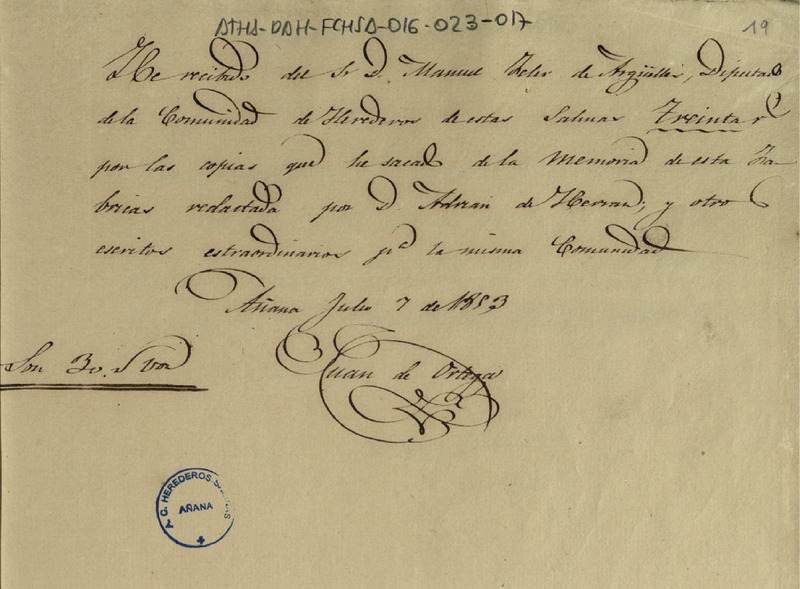 ATHA-DAH-FCHSA-016-023-017
19
He recibido del Sr D. Manuel Feliz de Argüelles, Diputado
de la Comunidad de Herederos de estas Salinas Treinta rˢ
por las copias que he sacado de la memoria de esta Fa-
bricas redactada por D Adrian de Herran; y otros
escritos estraordinarios pᵃ la misma Comunidad
Añana Julio 7 de 1853
Son 30. rˢ von
Juan de Ortega
Y. C. HEREDEROS
AÑANA